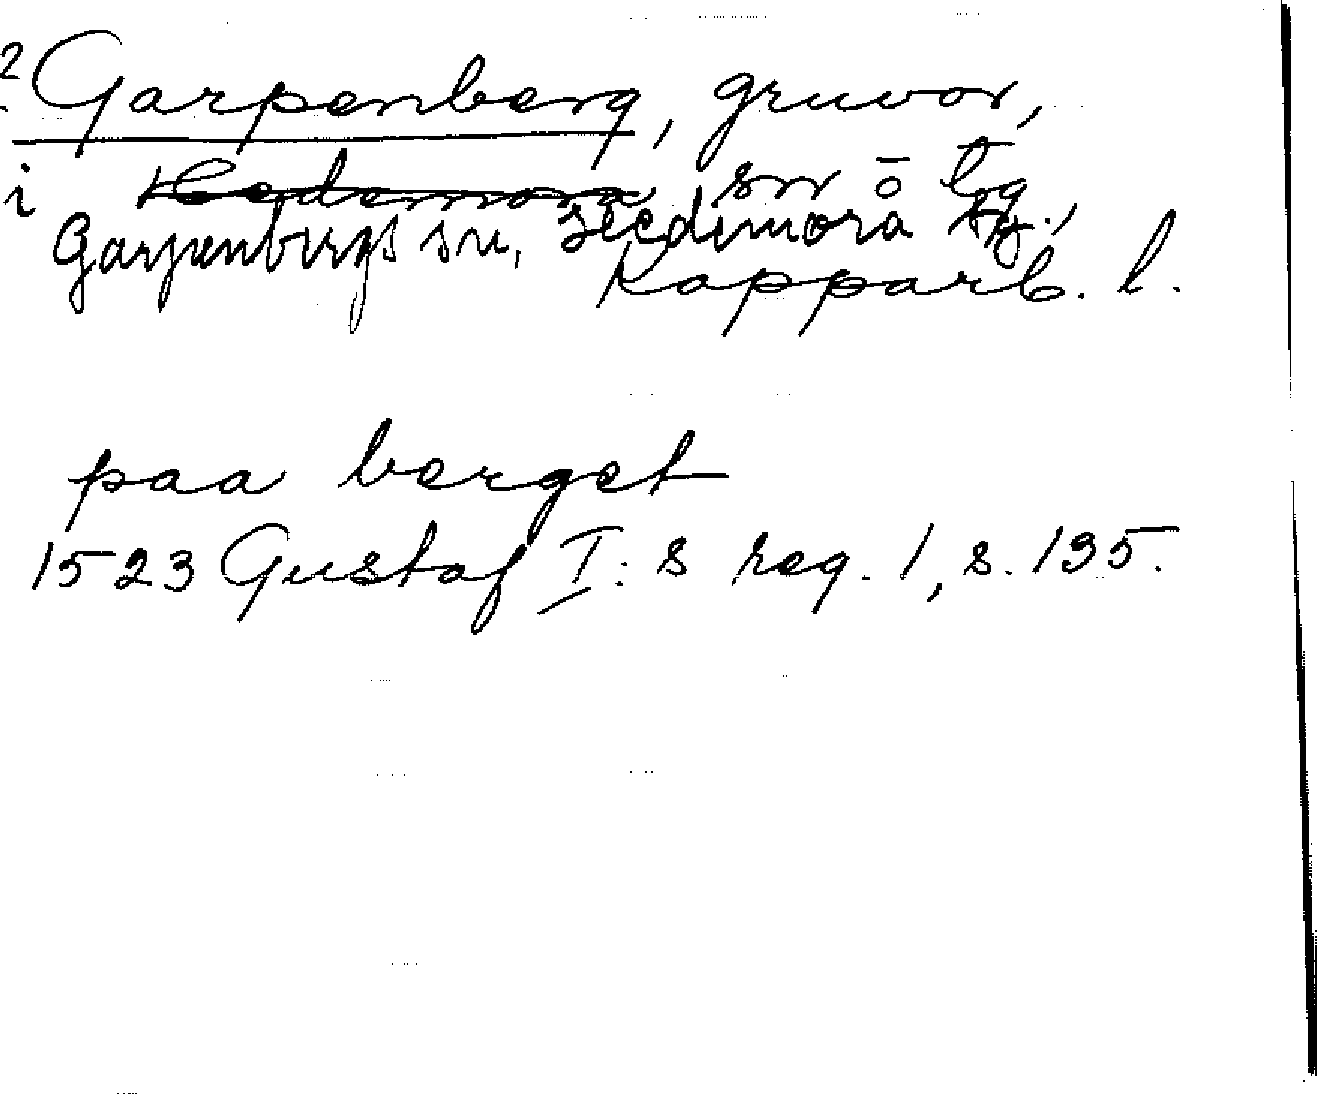 2 Garpenberg, gruvor,
i Hedemora sn o tg.,
Garpenbergs sn, Hedemora tg.,
Kopparb. l.
paa berget
1523 Gustaf I:s reg. 1, s. 135.